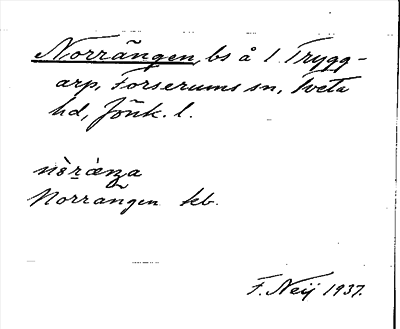 Norrängen, bs å 1 Trygg-
arp, Forserums sn, Tveta
hd, Jönk. l.
Norrängen kb.
F. Neij 1937.